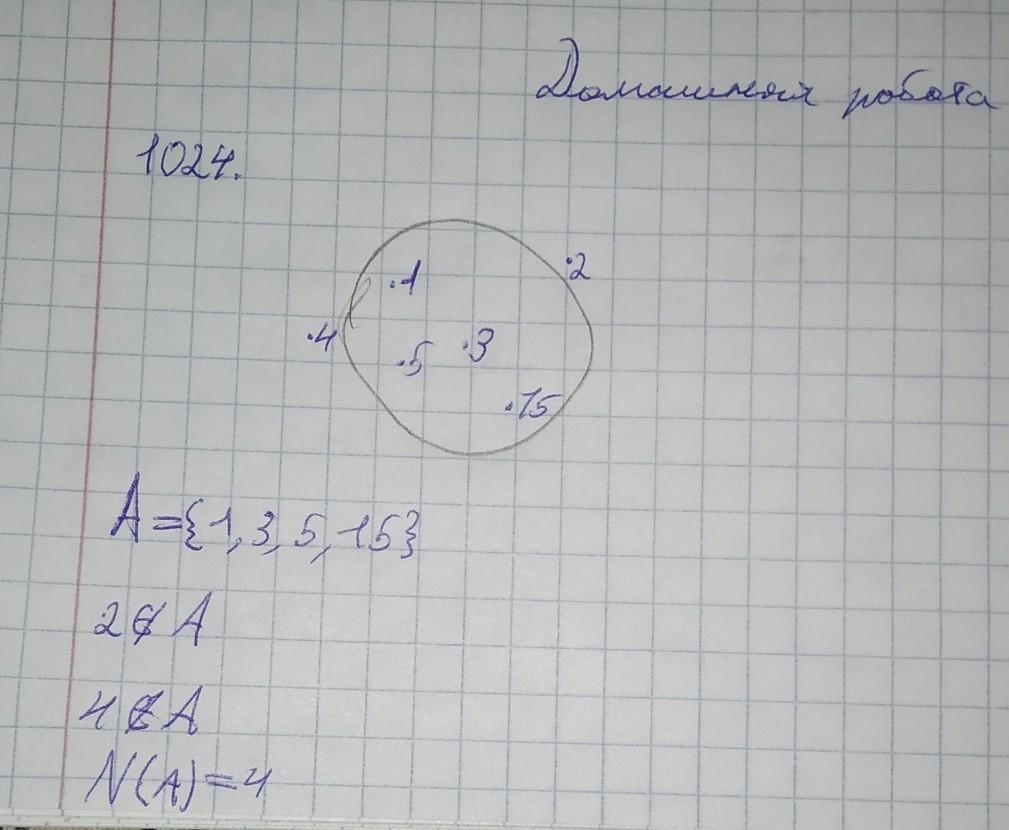 Домашняя робота
1024.
.1
.2
.4
.5
.3
.15
A={1,3,5,15}
2∉A
4∉A
N(A)=4